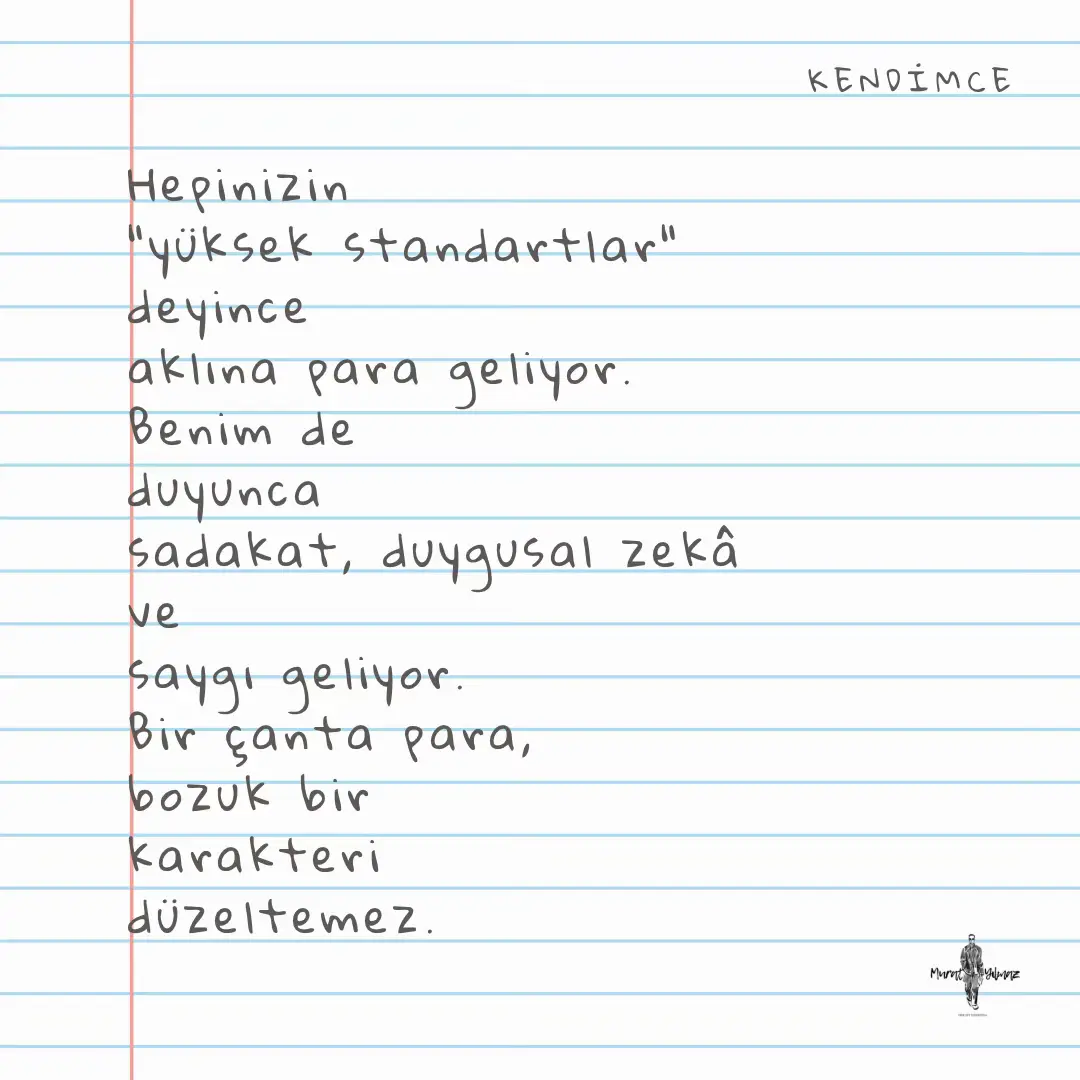 KENDİMCE
Hepinizin
"yüksek standartlar"
deyince
aklına para geliyor.
Benim de
duyunca
sadakat, duygusal zekâ
ve
saygı geliyor.
Bir çanta para,
bozuk bir
karakteri
düzeltemez.
Murat Yılmaz